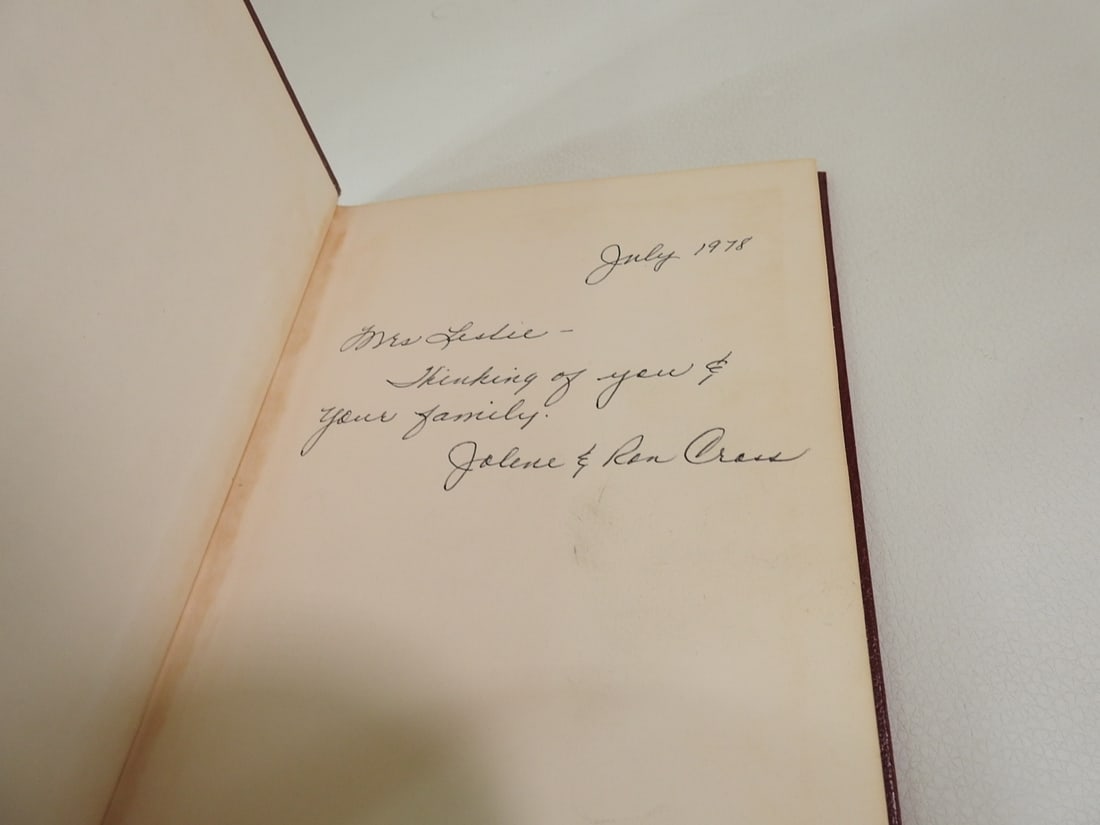 July 1978
Mrs Leslie -
Thinking of you &
your family.
Jolene & Ron Cross